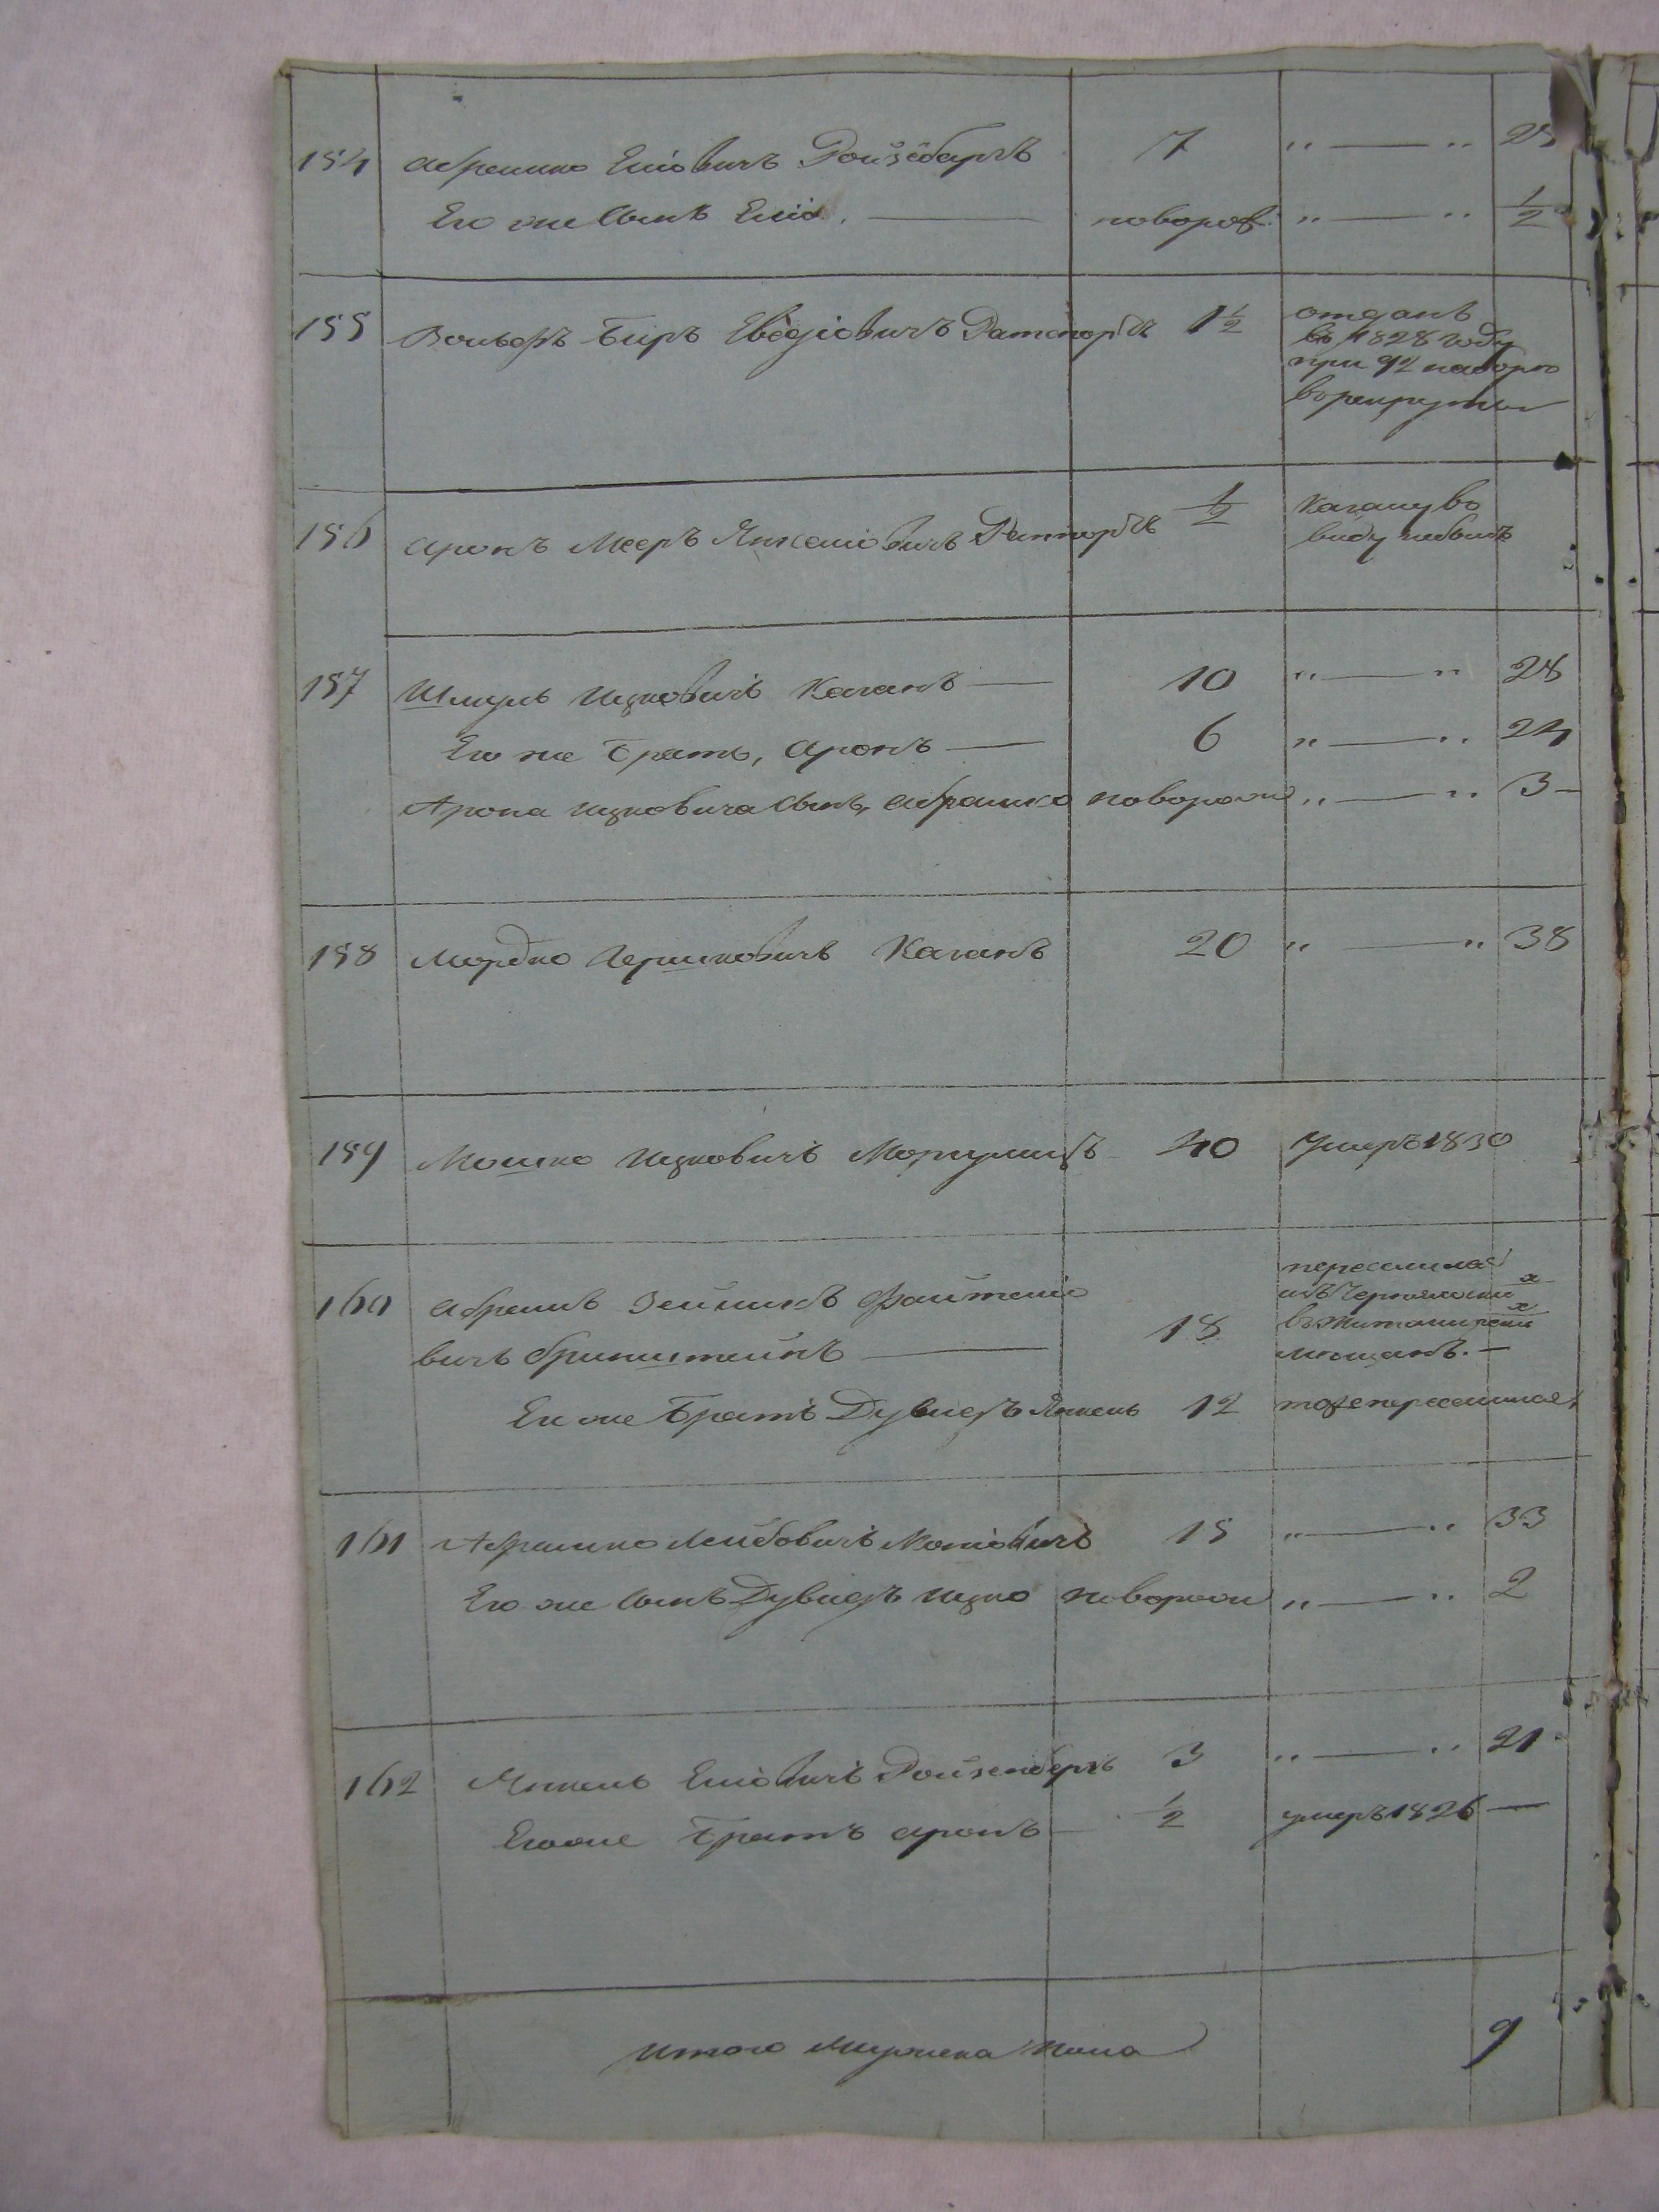 154 Абрамко Еиовичъ Ройзебаумъ 7 „ — „ 25
Его же Сынъ Еиіо. — новорож: „ — „ ½
155 Вольфъ Беръ Евесіовичъ Рапопортъ 1½ отданъ
въ 1828 году
при 92 наборѣ
в рекруты
156 Аронъ Мееръ Янкеліовичъ Рапопортъ ½ Кагалу во
виду небылъ
157 Шмуль Ицковичъ Каганъ — 10 „ — „ 28
Его же Братъ, Аронъ — 6 „ — „ 24
Арона Ицковича Сынъ, Абрамко новорожд „ — „ 3 —
158 Мордко Гершковичъ Каганъ 20 „ — „ 38
159 Мошко Ицковичъ 40 Умеръ 1830
160 Абрамъ Зейликъ Файтеліо
вичъ Бринштейнъ — 18 переселился
изъ
въ Житомирски х
мещанъ. —
Его же Братъ Дувидъ Янкель 12 тоже переселился
161 Абрамко Лейбовичъ 15 „ — „ 33
Его же Сынъ Дувидъ Ицко новорожд „ — „ 2
162 Янкель Еиовичъ Ройзенбергъ 3 „ — „ 21
Его же Братъ Аронъ — ½ умеръ 1826 —
Итого Мужеска Пола 9